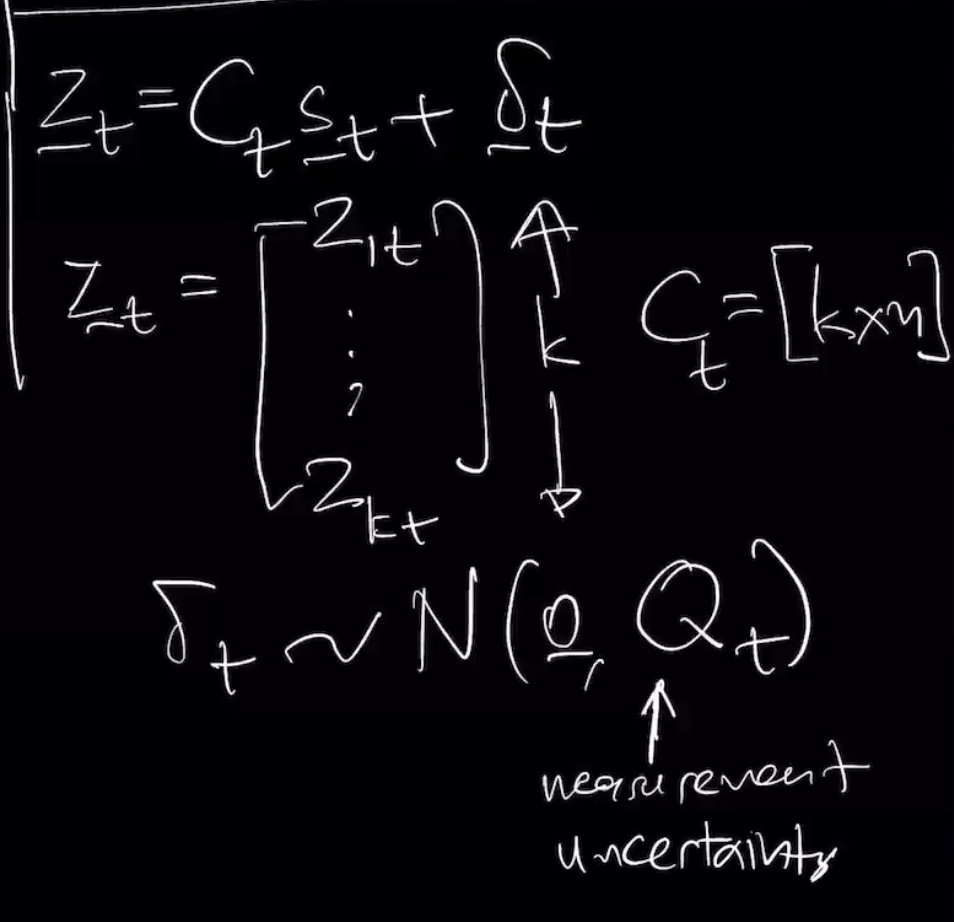 z_t = C_t s_t + δ_t
z_t = [z_1t ⋮ z_kt] k C_t = [k×n]
δ_t ~ N(0, Q_t)
measurement
uncertainty